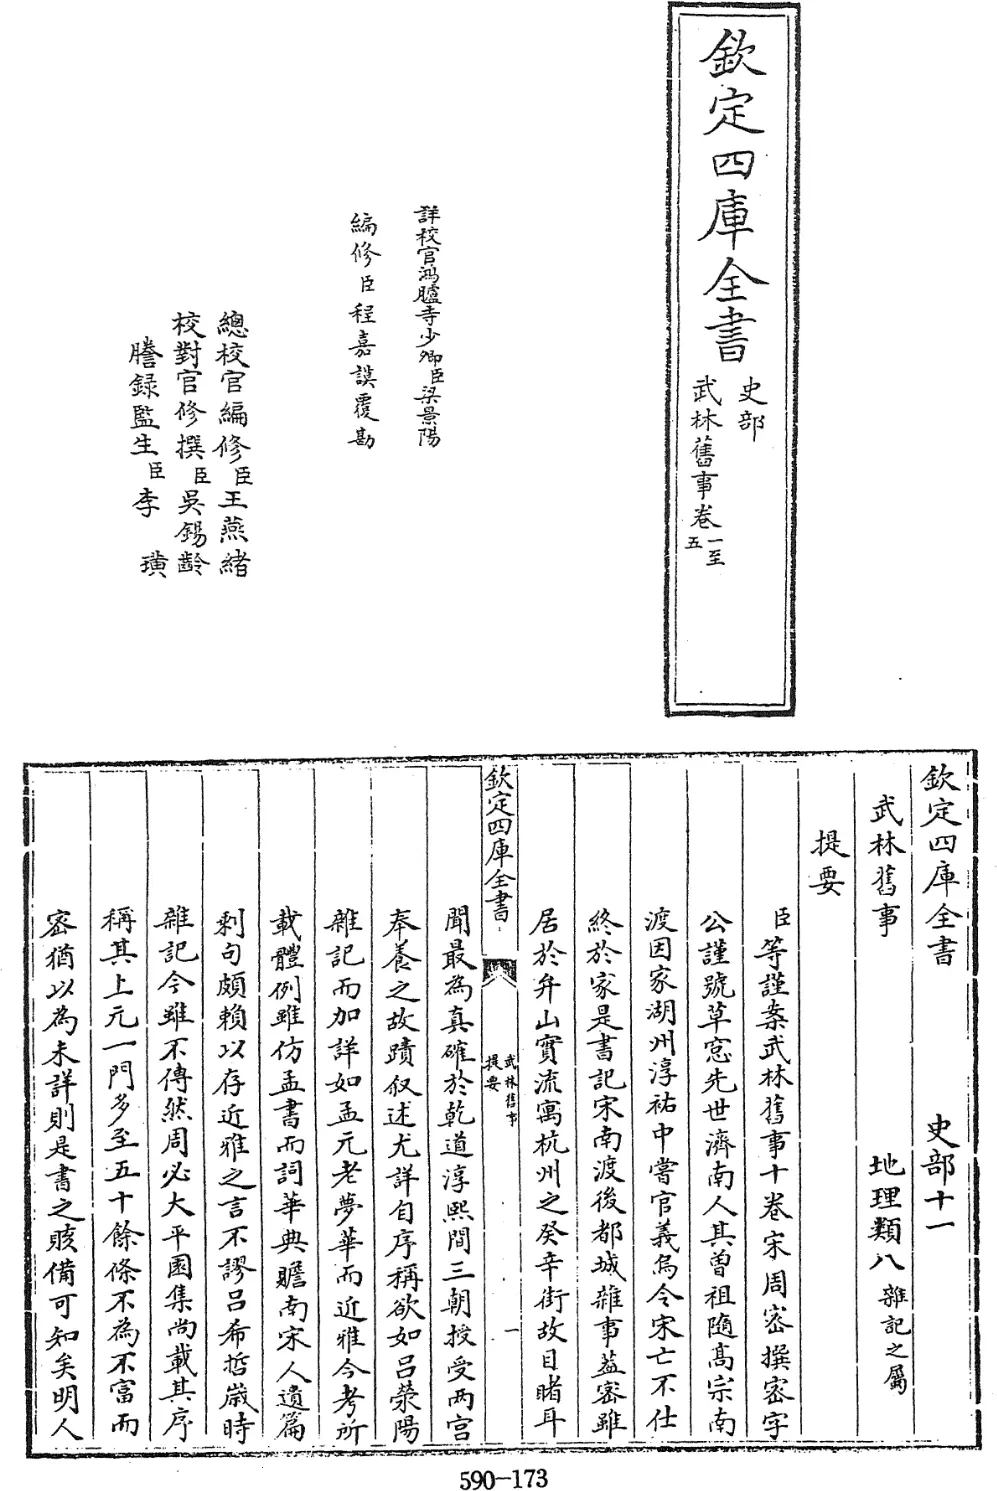 欽定四庫全書
史部
武林舊事卷一至五
詳校官鴻臚寺少卿臣梁景陽
編修臣程嘉謨覆勘
總校官編修臣王燕緒
校對官修撰臣吳錫齡
謄錄監生臣李璜
欽定四庫全書 史部十一
武林舊事 地理類八雜記之屬
提要
臣等謹案武林舊事十卷宋周密撰密字
公謹號草窻先世濟南人其曾祖隨髙宗南
渡因家湖州淳祐中嘗官義烏令宋亡不仕
終於家是書記宋南渡後都城雜事葢密雖
居於弁山實流寓杭州之癸辛街故目睹耳
欽定四庫全書
武林舊事
提要
一
聞最為真確於乾道淳熙間三朝授受两宫
奉養之故蹟叙述尤詳自序稱欲如吕滎陽
雜記而加詳如孟元老夢華而近雅今考所
載體例雖仿孟書而詞華典贍南宋人遺篇
剩句頗賴以存近雅之言不謬吕希哲嵗時
雜記今雖不傳然周必大平園集尚載其序
稱其上元一門多至五十餘條不為不富而
密猶以為未詳則是書之賅備可知矣明人
590-173